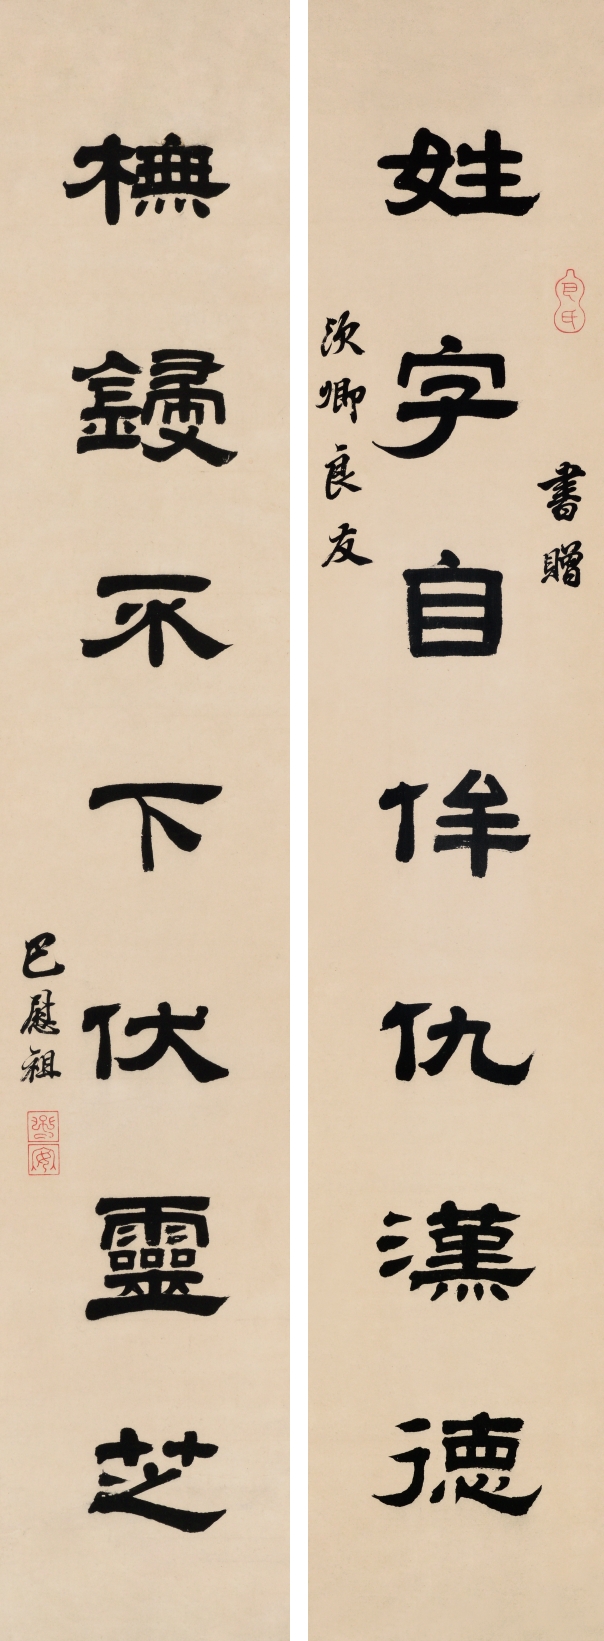 書贈
姓字自侔仇漢德
次卿良友
橅鋟不下伏靈芝
巴慰祖